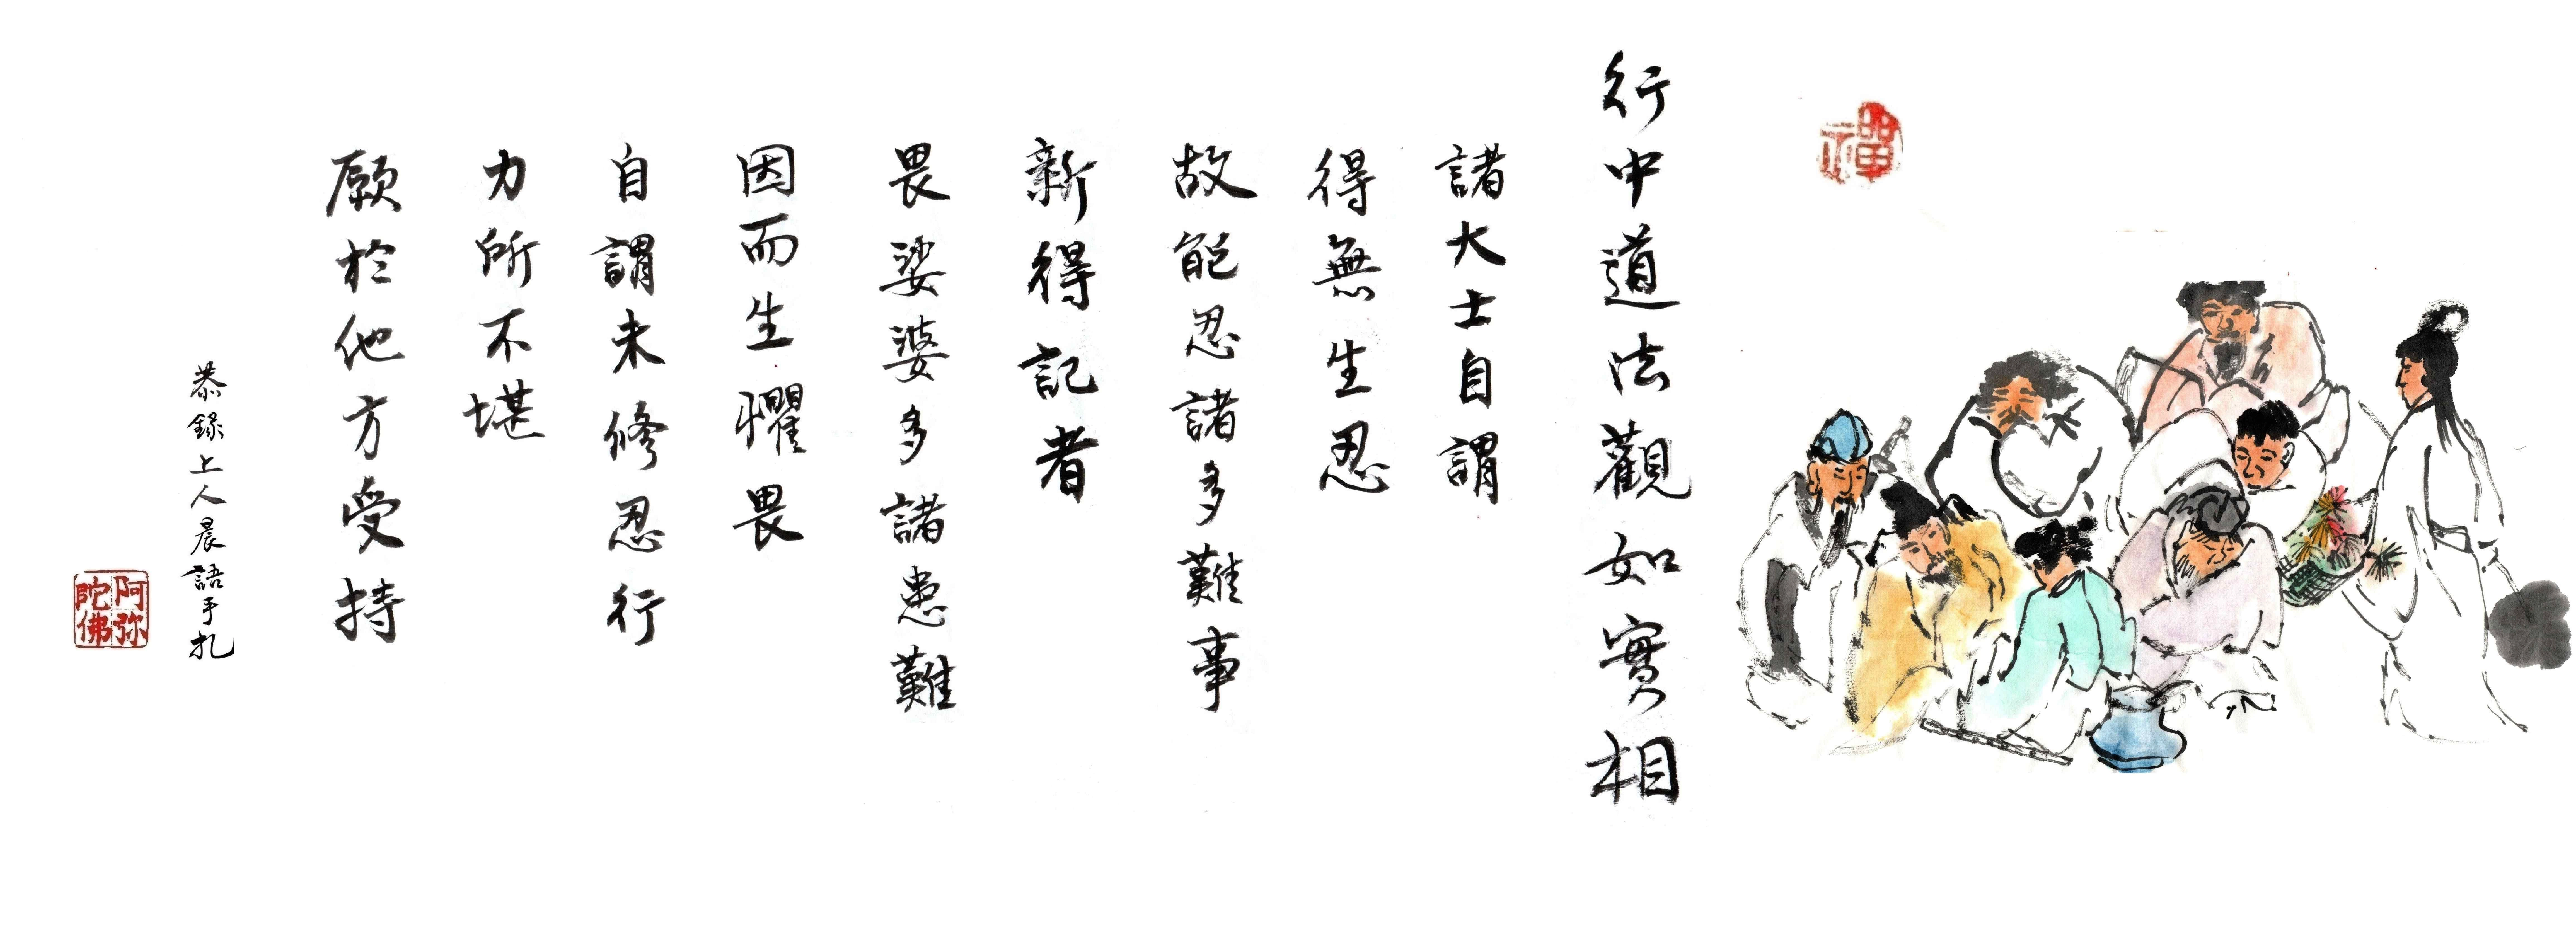 禪
行中道法觀如實相
諸大士自謂
得無生忍
故能忍諸多難事
新得記者
畏娑婆多諸患難
因而生懼畏
自謂未修忍行
力所不堪
願於他方受持
恭錄上人晨語手札
阿弥
陀佛